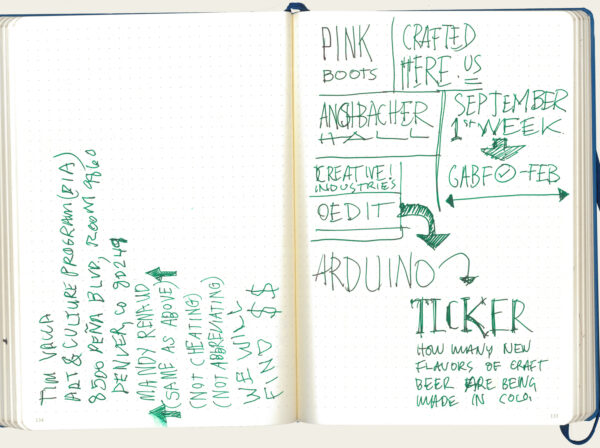 TIM VACCA
ART & CULTURE PROGRAM (DIA)
8500 PEÑA BLVD, ROOM 9860
DENVER, CO 80249
MANDY RENAUD
(SAME AS ABOVE)
(NOT CHEATING)
(NOT ABBREVIATING)
WE WILL
FIND $$
134
PINK
BOOTS
CRAFTED
HERE. US
ANSHBACHER
HALL
SEPTEMBER
1ST WEEK
CREATIVE!
INDUSTRIES
OEDIT
GABF -FEB
ARDUINO
TICKER
HOW MANY NEW
FLAVORS OF CRAFT
BEER ARE BEING
MADE IN COLO.